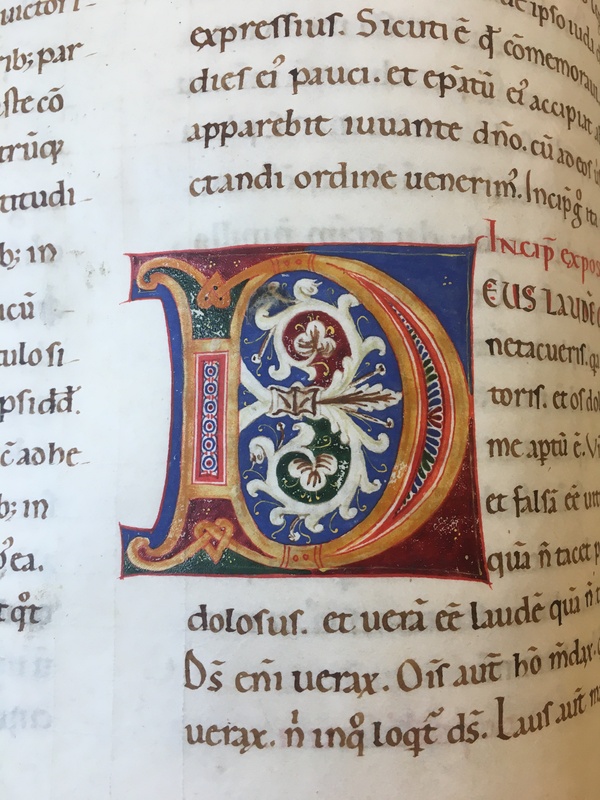 uictori-
rib; par-
iste cō
trūq;
titudi-
b; in
acū
tulo si-
psidd̄.
c̄ ad he-
b; in
ꝰ ea.
tq̄t
de ipso iuda
expressius. Sicuti ē q̄ cōmemoraui
dies eiꝰ pauci. et ep̄atū eiꝰ accipiat
apparebit iuuante dn̄o. cū ad eos
ctandi ordine uenerimꝰ. Incip̄ g̊ ita
Incip̄ expos
D
EUS LAUDĒ
ne tacueris. q
toris. et os dol
me aptū ē. Vi
et falsā eē
quā n̄ tacet
dolosus. et uerā eē laudē quā n̄
Ds̄ eni uerax. Ois aut̄ hō m̄dax.
uerax. n̄ inq̊ loqt̄ ds̄. Laus aut̄